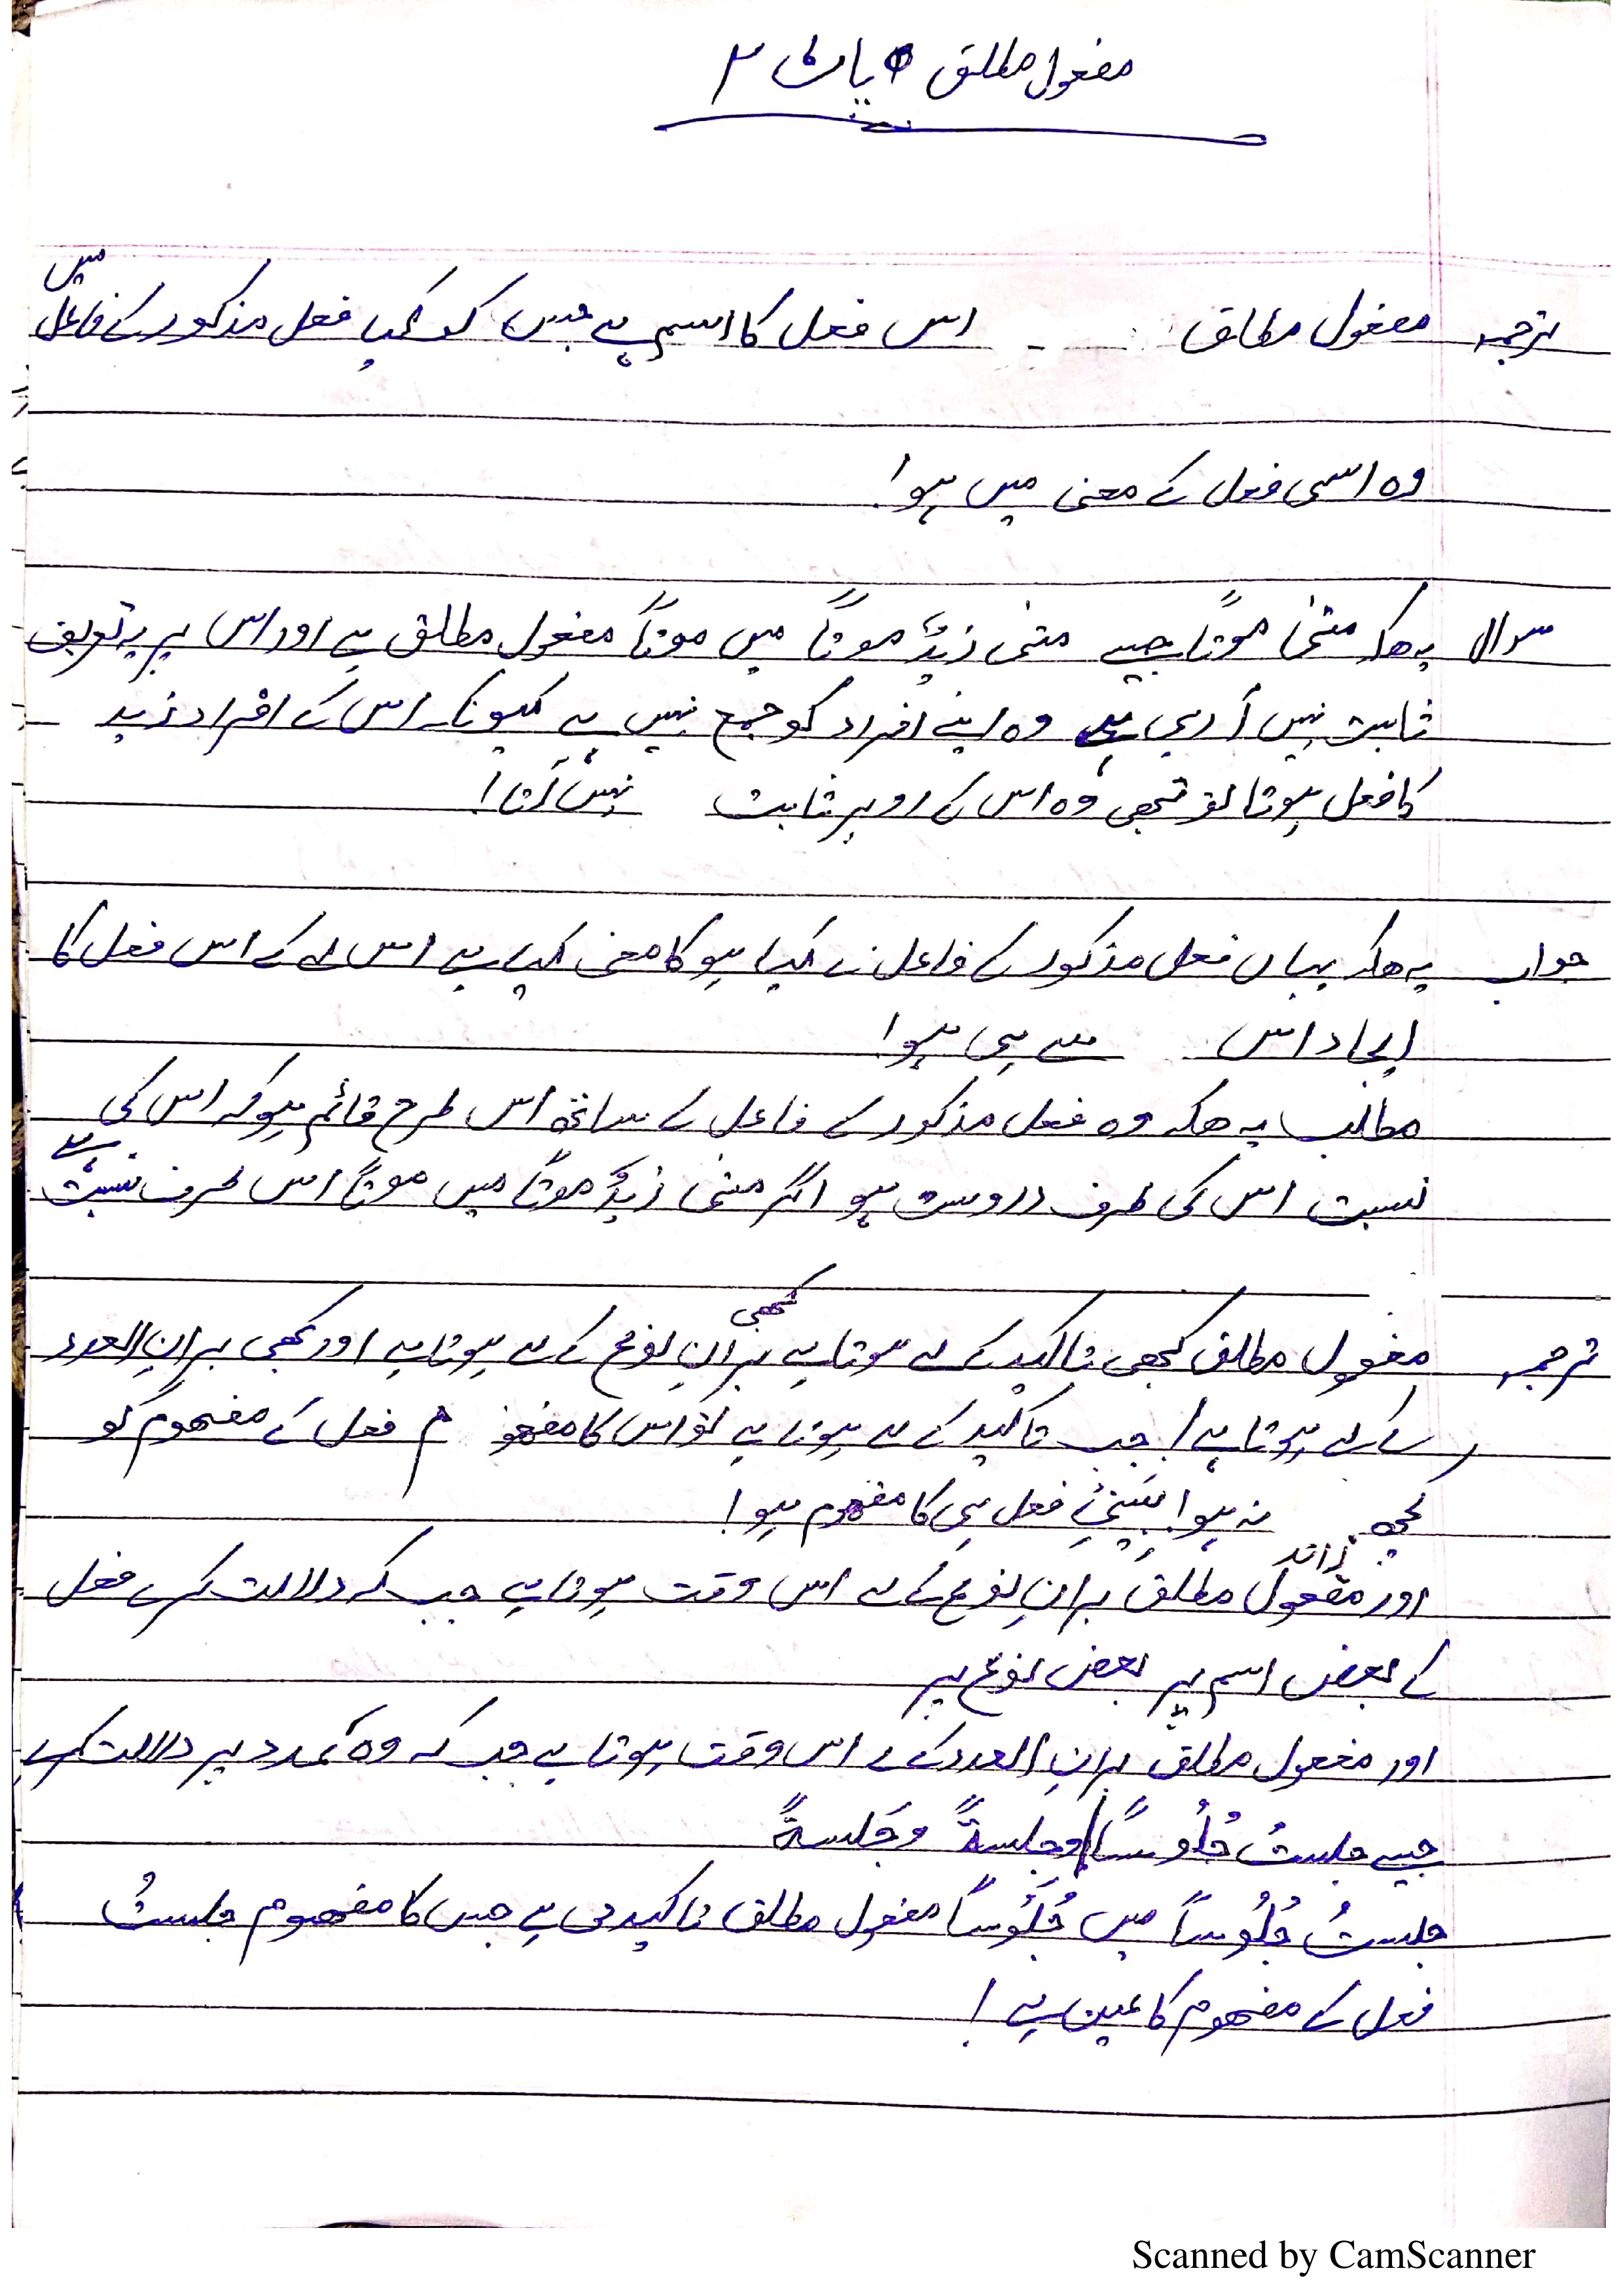 مفعول مطلق پاٹ ٢
ترجمہ مفعول مطلق اس فعل کا اسم ہے جس کو کیا فعل مذکور کے فاعل میں
وہ اسی فعل کے معنی میں ہو!
سوال یہ ھیکہ جیسے زیدٌ موتاً میں موتاً مفعول مطلق ہے اور اس پر یہ تعریف
ثابت نہیں آرہی ہے وہ اپنے افراد کو جمع نہیں ہے کیونکہ اس کے افراد زید
کا فعل ہوتا تو تبھی وہ اس کے اوپر ثابت نہیں آتا!
جواب یہ ھیکہ یہاں فعل مذکور کے فاعل نے کیا ہو کا معنی کیا ہے اس لۓ کے اس فعل کا
ایجاد اس سے ہی ہو!
مطلب یہ ھیکہ وہ فعل مذکور کے فاعل کے ساتھ اس طرح قائم ہو کہ اس کی
نسبت اس کی طرف دروست ہو اگر زیدٌ موتاً میں موتاً اس طرف نسبت ہے
ترجمہ مفعول مطلق کبھی تاکید کے لۓ ہوتا ہے کبھی برانِ نوع کے لۓ ہوتا ہے اور کبھی برانِ العدد
کے لۓ ہوتا ہے! جب تاکید کے لۓ ہوتا ہے تو اس کا مفھوم فعل کے مفھوم کو
کچھ زائد نہ ہو! فعل ہی کا مفھوم ہو!
اور مفعول مطلق برانِ نوع کے لۓ اس وقت ہوتا ہے جب کہ دلالت کرے فعل
کے بعض اسم پر بعض نوع پر
اور مفعول مطلق برانِ العدد کے لۓ اس وقت ہوتا ہے جب کہ وہ عدد پر دلالت کرے
جیسے جلستُ جُلُوساً وجِلسةً وجَلسةً
جلستُ جُلُوساً میں جُلُوساً مفعول مطلق تاکیدی ہے جس کا مفھوم جلستُ
فعل کے مفھوم کا عین ہے!
Scanned by CamScanner